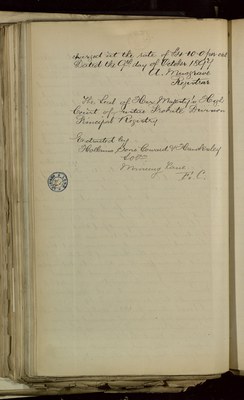 charged at the rate of £4-10-0 per cent
Dated the 9th day of October 1897
A. Musgrave
Registrar
The Seal of Her Majesty's High
Court of Justice Probate Division
Principal Registry
Extracted by
Hollams Sons Coward & Hawksley
Solrs
Mincing Lane
E.C.